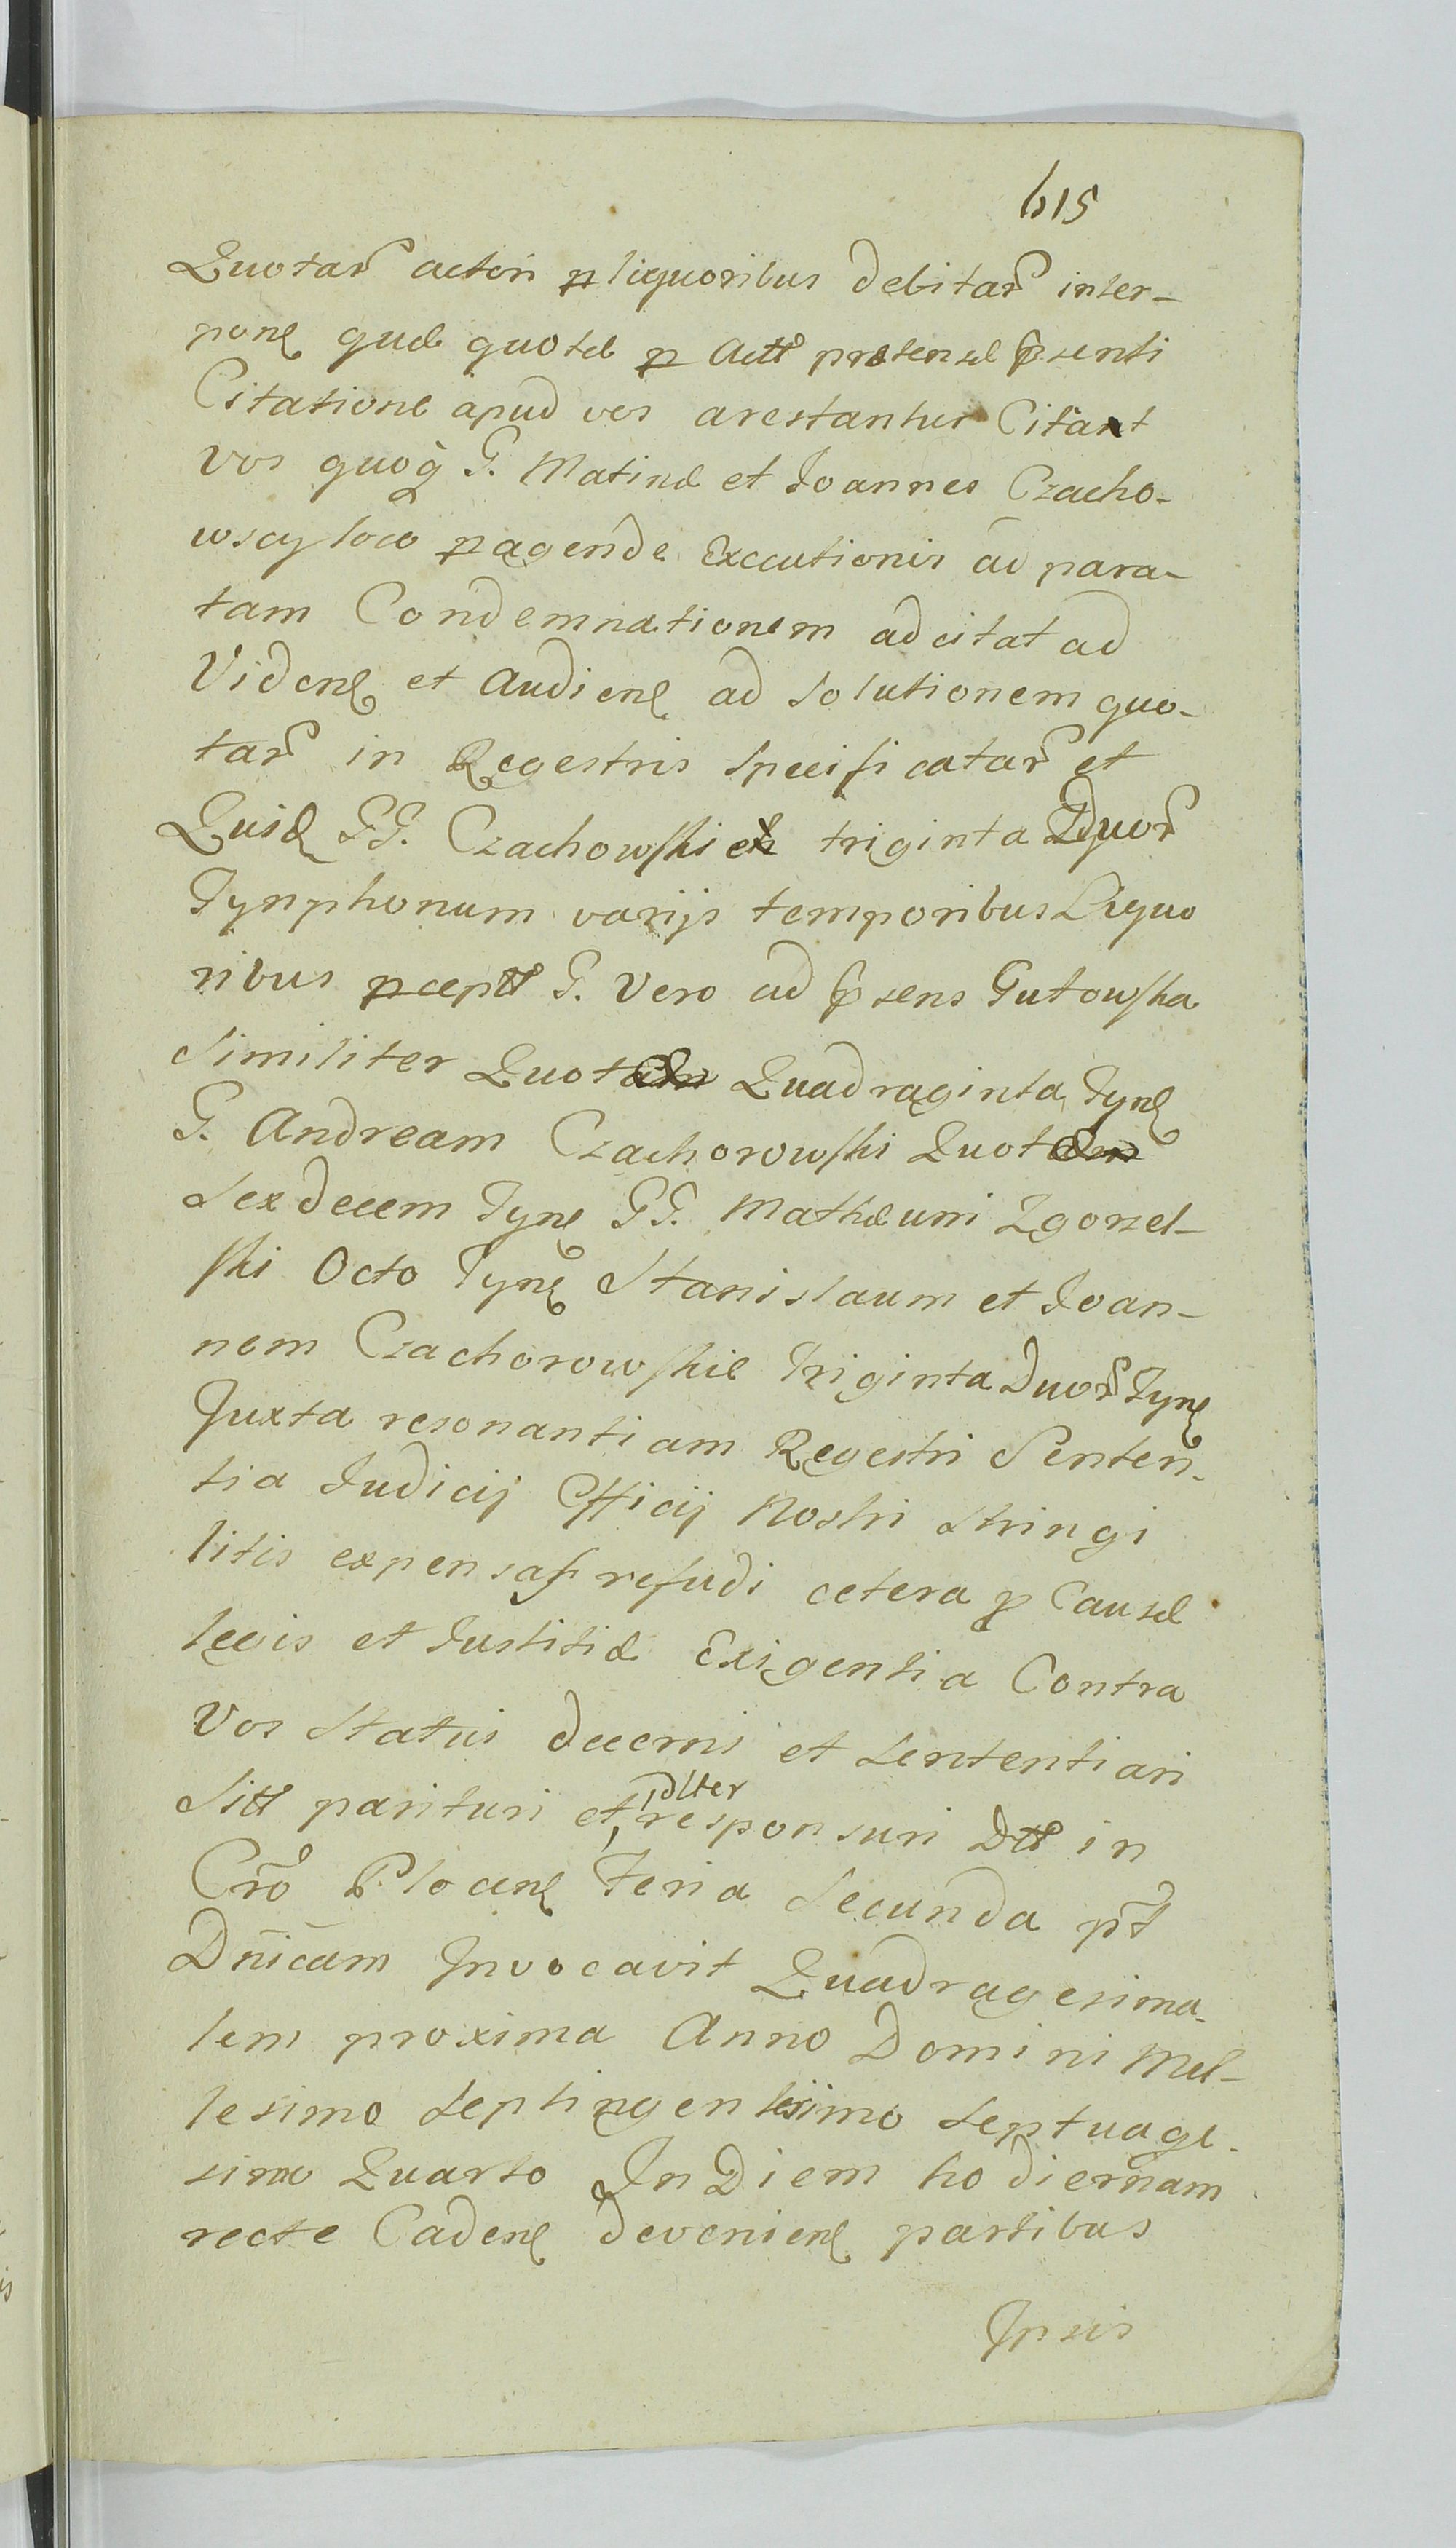 615
Quotar̃ actori p liquoribus debitar̃ inter-
ponẽ quæ quotæ p Actt̃ prætensæ p̃senti
Citatione apud vos arestantur Citant
vos quoq̃ G. Matiæ et Joannes Czacho-
wscy loco pagendæ Executionis ad para-
tam Condemnationem adcitat ad
Videnẽ et Audienẽ ad Solutionem quo-
tar̃ in Regestris Specificatar̃ et
Quidẽ GG. Czachowskie triginta Duor̃
Tynphonum varijs temporibus Liquo
ribus pceptt̃ G. Vero ad p̃sens Gutowska
Similiter Quota Quadraginta Tynẽ
G. Andream Czachorowski Quota
Sexdecem Tynẽ GG. Mathæum Zgorzel-
ski Octo Tynẽ Stanislaum et Joan-
nem Czachorowskie Triginta Duor̃ Tynẽ
Juxta resonantiam Regestri Senten-
tia Judicij Officij Nostri Stringi
litis expensas refudi cetera p Causæ
legis et Justitiæ Exigentia Contra
Vos Statui decerni et Sententiari
Sitt̃ parituri et jdlter responsuri Dtt̃ in
Crõ Plocenẽ Feria Secunda p̃t
Dñicam Invocavit Quadragesima-
lem proxima Anno Domini Mel-
lesimo Septingentesimo Septuage-
simo Quarto In Diem hodiernam
recte Cadenẽ devenienẽ partibus
Ipsis